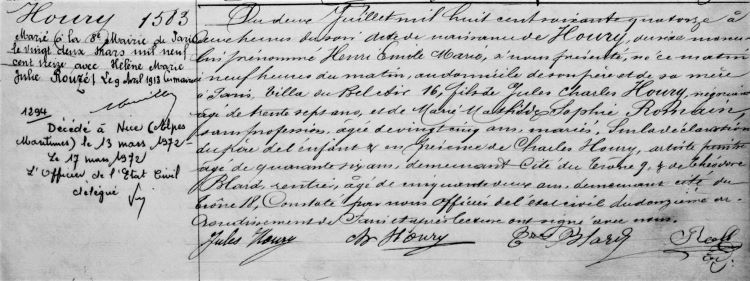 Houry 1583
Marié à la 8e Mairie de Paris
le vingt deux Mars mil neuf
cent seize avec Hélène Marie
Julie Rouzé. Le 9 Avril 1913
1294
Décédé à Nice (Alpes
Maritimes) le 13 mars 1972
Le 17 mars 1972
L'Officier de l'Etat Civil
délégué
Du deux Juillet mil huit cent soixante quatorze à
heures du soir acte de naissance de Houry, du sexe mascu-
lin prénommé Henri Emile Marie, à nous présenté, né ce matin
à neuf heures du matin, au domicile de son père et de sa mère
à Paris, Villa du Bel Air 16, fils de Jules Charles Houry, négociant
âgé de trente sept ans, et de Marie Mathilde Sophie Romain,
sans profession, âgée de vingt cinq ans, mariés. Sur la déclaration
du père de l'enfant & en présence de Charles Houry, artiste peintre
âgé de quarante six ans, demeurant Cité du Trône 9, & de Théodore
Blard, rentier, âgé de cinquante deux ans, demeurant cité du
Trône 18, Constaté par nous Officier de l'état civil du douzième ar-
rondissement de Paris et après lecture ont signé avec nous.
Jules Houry Ch Houry Blard